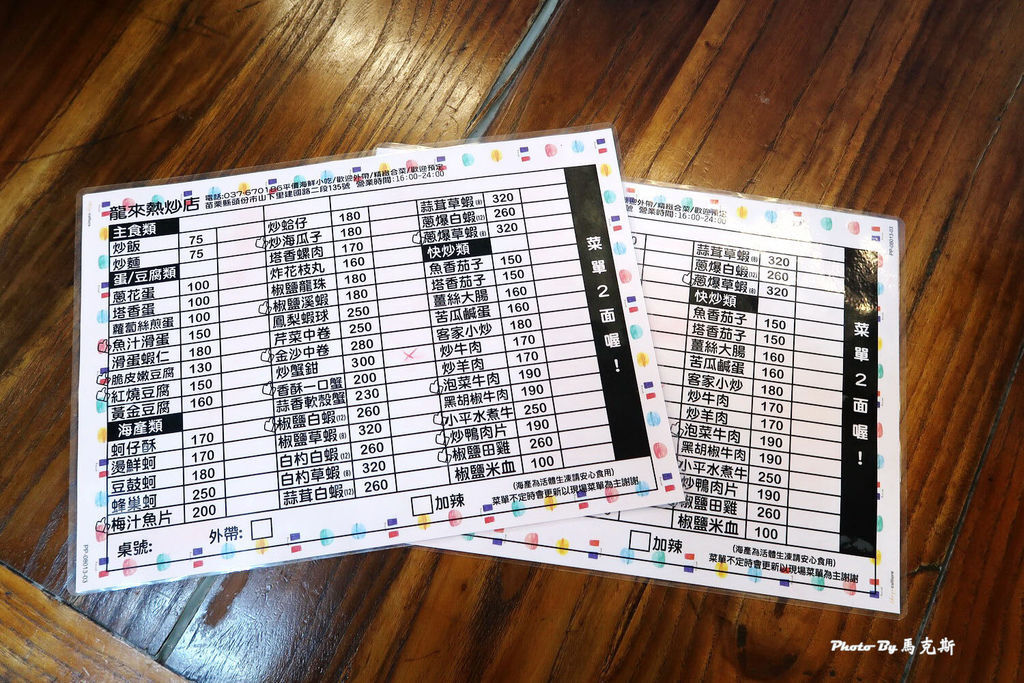 龍來熱炒店
電話:037-670186平價海鮮小吃/歡迎外帶/精緻合菜/歡迎預定
苗栗縣頭份市山下里建國路二段135號 營業時間:16:00-24:00
主食類
炒飯 75
炒麵 75
蛋/豆腐類
蔥花蛋 100
塔香蛋 100
蘿蔔絲煎蛋 100
魚汁滑蛋 150
滑蛋蝦仁 180
脆皮嫩豆腐 130
紅燒豆腐 150
黃金豆腐 160
海產類
蚵仔酥 170
燙鮮蚵 170
豆鼓蚵 180
蜂巢蚵 250
梅汁魚片 200
炒蛤仔 180
炒海瓜子 180
塔香螺肉 170
炸花枝丸 160
椒鹽龍珠 180
椒鹽溪蝦 180
鳳梨蝦球 250
芹菜中卷 250
金沙中卷 280
炒蟹鉗 300
香酥一口蟹 200
蒜香軟殼蟹 230
椒鹽白蝦(12) 260
椒鹽草蝦(8) 320
白杓白蝦(12) 260
白杓草蝦(8) 320
蒜茸白蝦(12) 260
蒜茸草蝦(8) 320
蔥爆白蝦(12) 260
蔥爆草蝦(8) 320
快炒類
魚香茄子 150
塔香茄子 150
薑絲大腸 160
苦瓜鹹蛋 160
客家小炒 180
炒牛肉 170
炒羊肉 170
泡菜牛肉 190
黑胡椒牛肉 190
小平水煮牛 250
炒鴨肉片 190
椒鹽田雞 260
椒鹽米血 100
菜單2面喔!
桌號:
外帶:
加辣
(海產為活體生凍請安心食用)
菜單不定時會更新以現場菜單為主謝謝
PP-08013-03
迎外帶/精緻合菜/歡迎預定
營業時間:16:00-24:00
蒜茸草蝦(8) 320
蔥爆白蝦(12) 260
蔥爆草蝦(8) 320
快炒類
魚香茄子 150
塔香茄子 150
薑絲大腸 160
苦瓜鹹蛋 160
客家小炒 180
炒牛肉 170
炒羊肉 170
泡菜牛肉 190
黑胡椒牛肉 190
小平水煮牛 250
炒鴨肉片 190
椒鹽田雞 260
椒鹽米血 100
菜單2面喔!
加辣
(海產為活體生凍請安心食用)
菜單不定時會更新以現場菜單為主謝謝
PP-08013-03
Photo By 馬克斯